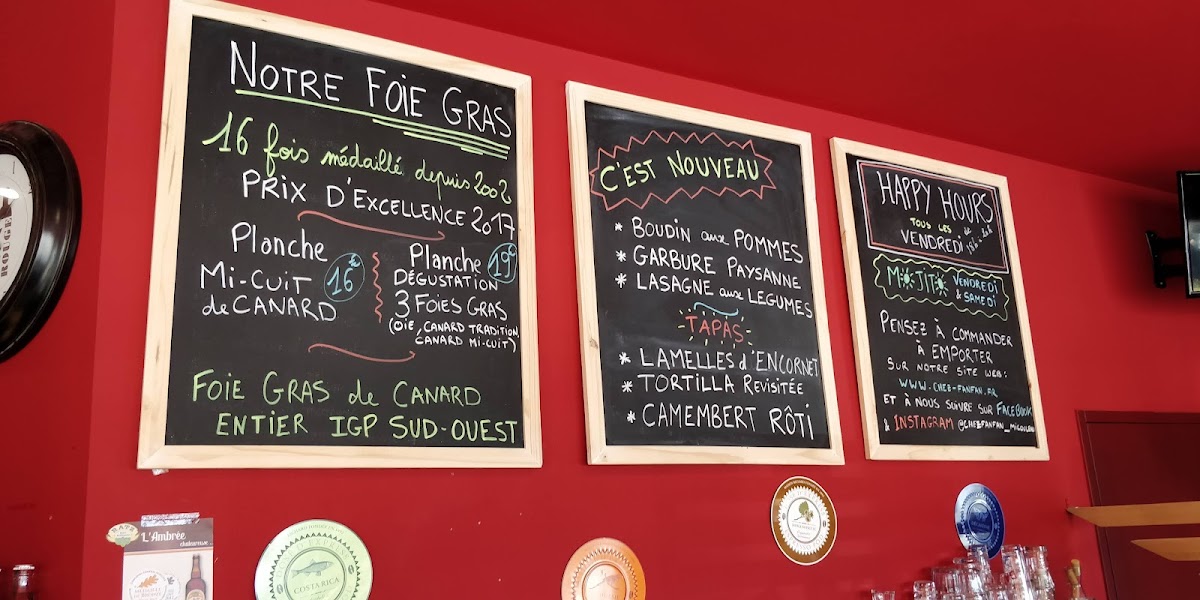 NOTRE FOIE GRAS
16 fois médaillé depuis 2002
PRIX D'EXCELLENCE 2017
Planche
MI-CUIT
de CANARD
16€
Planche
DÉGUSTATION
19€
3 FOIES GRAS
(OIE, CANARD TRADITION,
CANARD MI-CUIT)
FOIE GRAS de CANARD
ENTIER IGP SUD-OUEST
C'EST NOUVEAU
* BOUDIN aux POMMES
* GARBURE PAYSANNE
* LASAGNE aux LEGUMES
TAPAS
* LAMELLES d'ENCORNET
* TORTILLA REVISITÉE
* CAMEMBERT RÔTI
HAPPY HOURS
TOUS LES
VENDREDI
MOJITO VENDREDI
& SAMEDI
PENSEZ À COMMANDER
À EMPORTER
SUR NOTRE SITE WEB:
WWW.CHEB-FANFAN.FR
ET À NOUS SUIVRE SUR FACEBOOK
& INSTAGRAM
ROUGE
RATZ
L'Ambrée
COSTA RICA